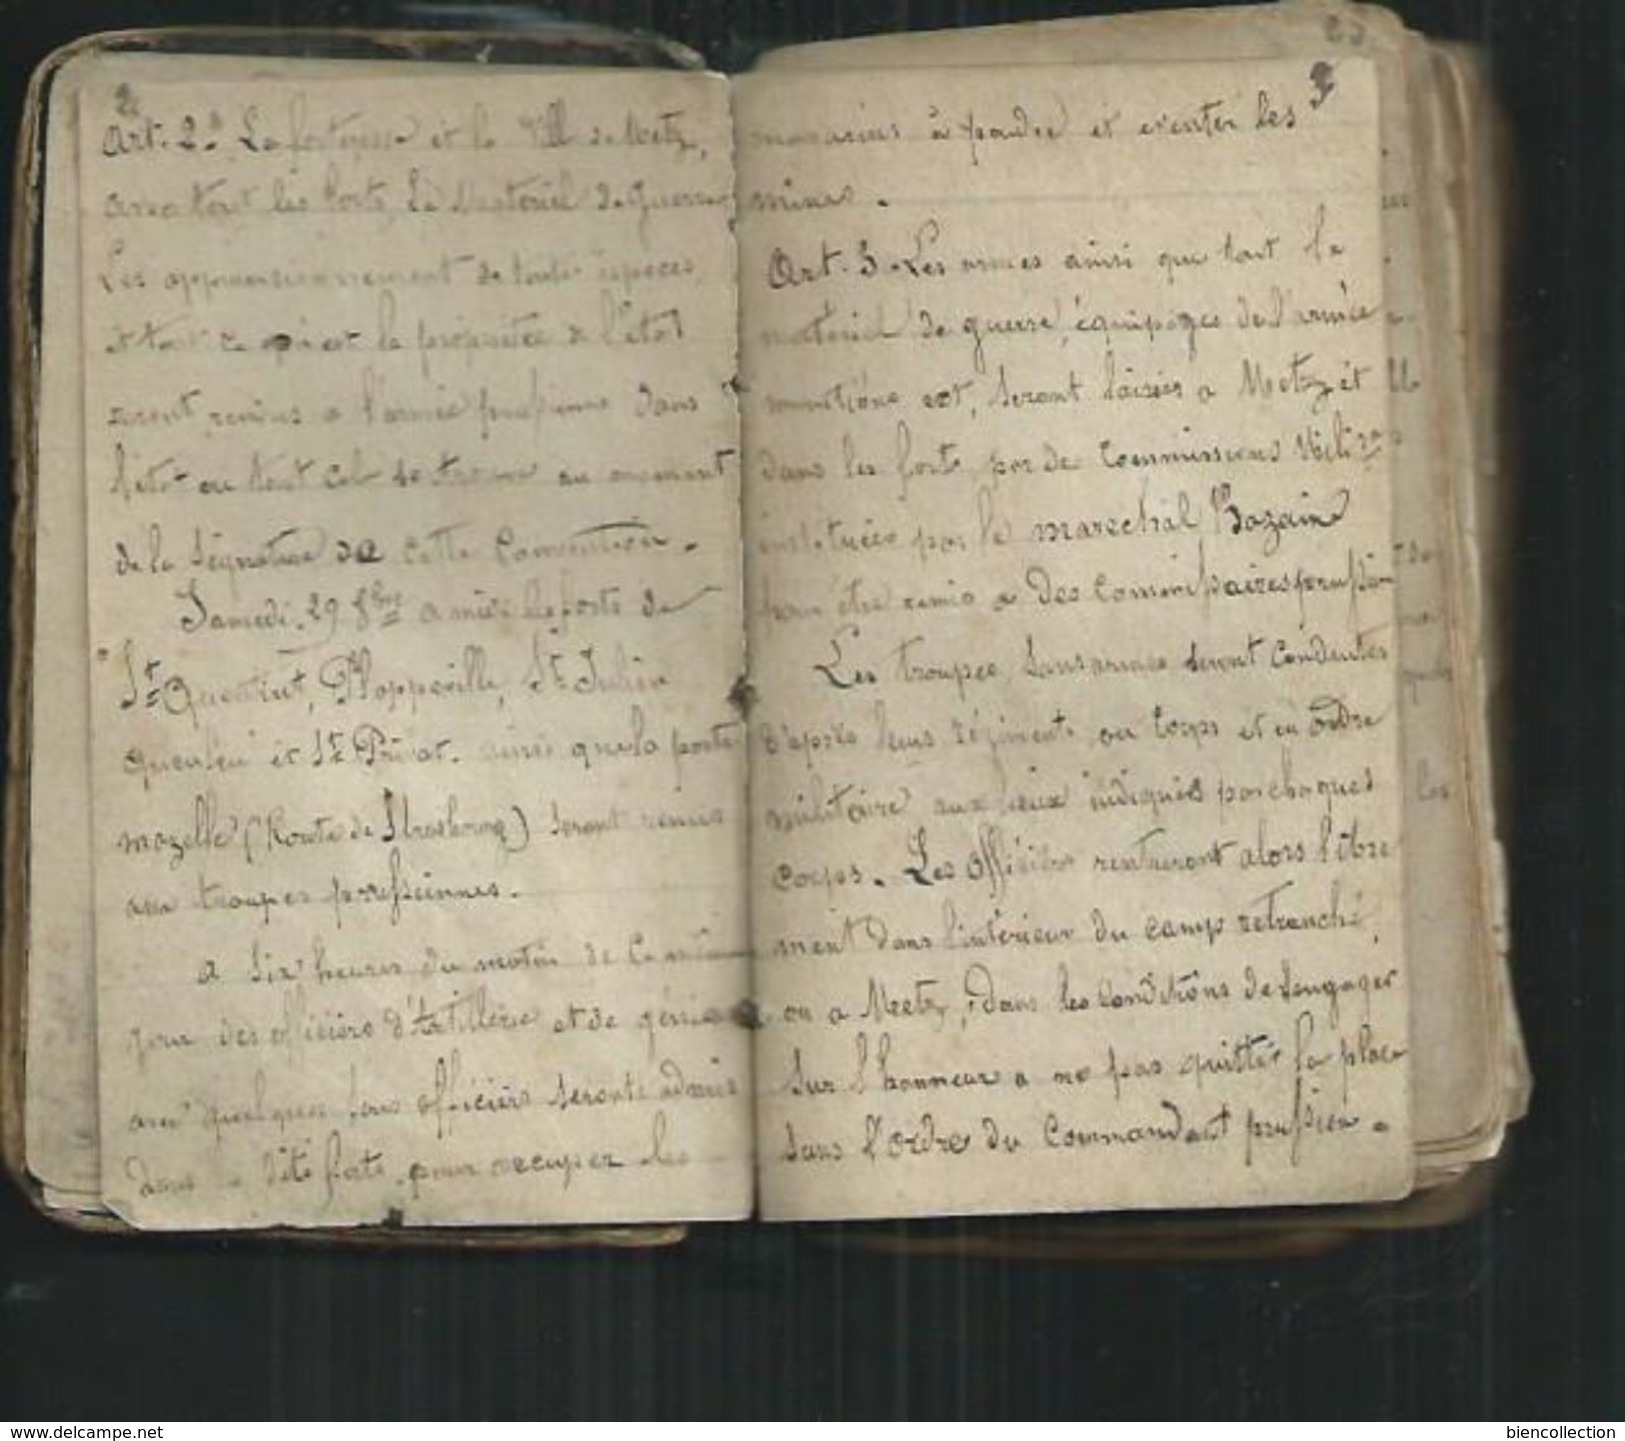 2
Art. 2e La forteresse et la Ville de Metz,
avec tout les forts, Le Materiel de guerre
Les approvisionnement de toute especes,
et tout ce qui est la propriétée de l'état
seront remius a l'armée prussienne dans
l'état ou tout cel se trouve au moment
de la Segnature de cette Convention.
Samedi. 29 8bre a midi les forts de
St Quentint, Plappeville, St Julien
queuleu et St Privat. ainsi que la porte
mazelle (Route de Strasbourg) seront remis
aux troupes prussiennes.
A six heures du matin de Ce même
jour des officiers d'Artillerie et de génie
avec quelques sous officiers seronts admis
dans dits forts, pour occuper les
23
3
magasins à poudre et eventer les
mines.
Art. 3. Les armes ainsi que tout le
matériel de guerre, équipages de l'armée
munitions ect, seront laissés a Metz et
dans les forts, par des Commissions Milires
instituées par le marechal Bazaine
pour être remis a des Commissaires prussien
Les troupes, sans armes seront condeutes
d'après leurs régiments ou Corps et en ordre
militaire aux lieux indiqués par chaques
Corps. Les Officiers rentreront alors libre
ment dans l'intérieur du camp retranché,
ou a Meetz, dans les Conditions de s'engager
sur l'honneur a ne pas quitter la place
sans l'ordre du Commandant prussien.
les
delcampe.net
biencollection